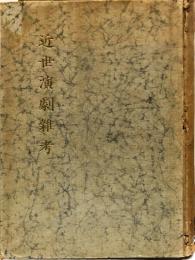 近世演劇雜考